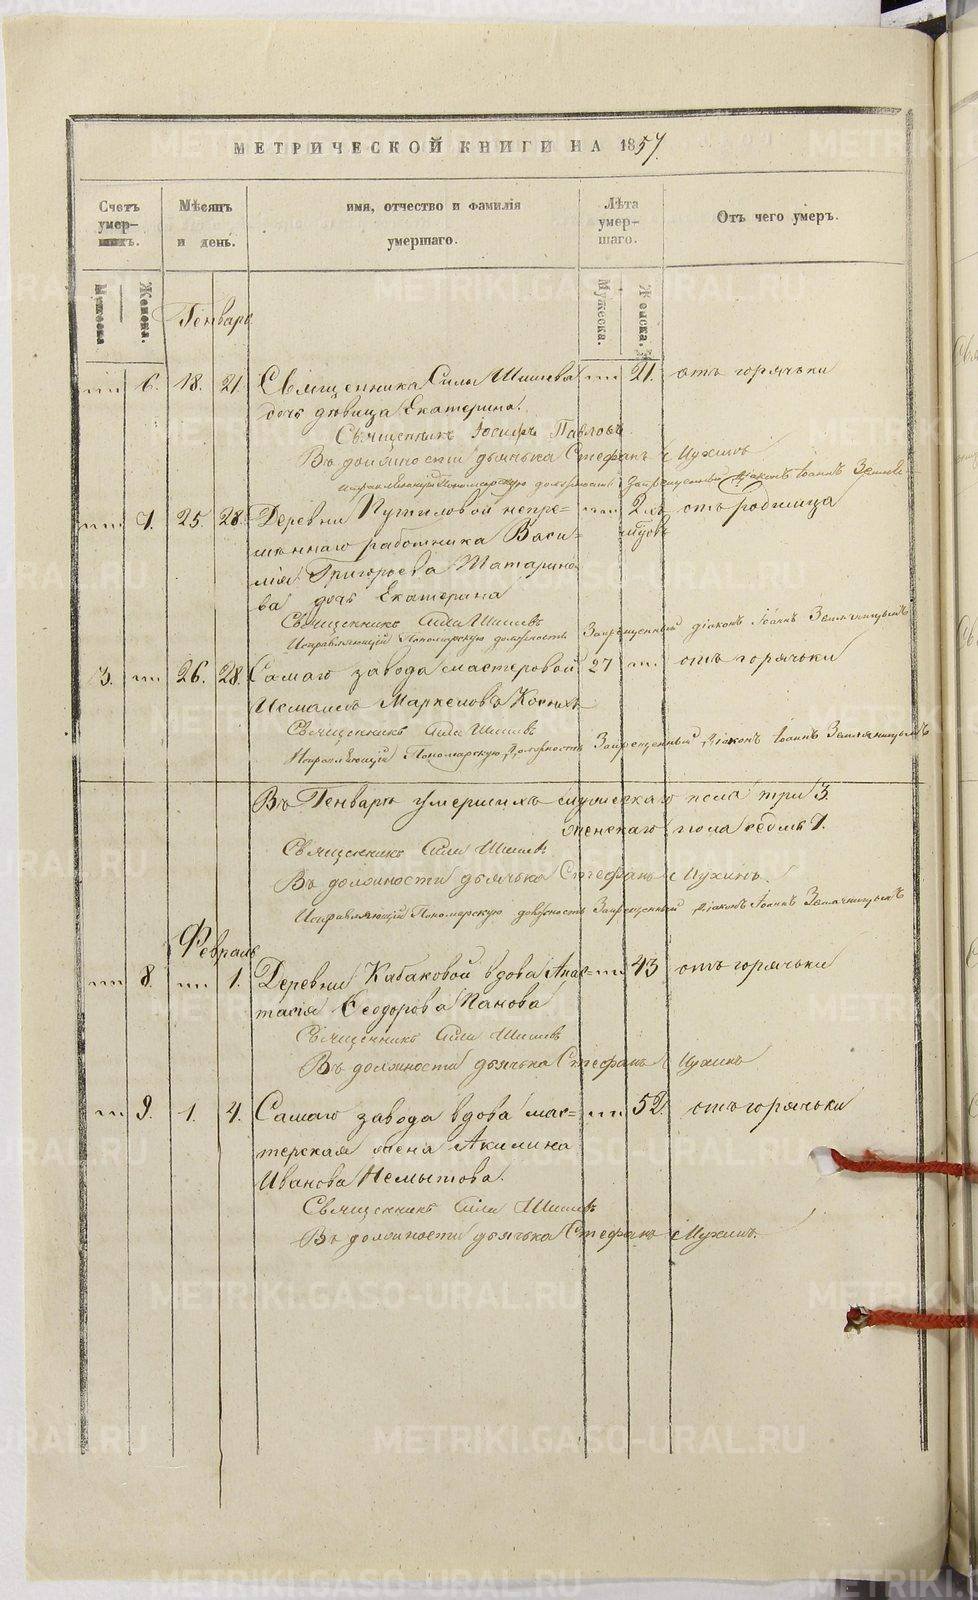 МЕТРИЧЕСКОЙ КНИГИ НА 1857.
Счетъ умер-шихъ.
Мѣсяцъ и день.
имя, отчество и фамилія умершаго.
Лѣта умер-шаго.
Отъ чего умеръ.
Мужеска. Женска.
Мужеска. Женска.
Генварь
6. 18. 21. Священника Силы Шишева 21. отъ горячьки
дочь дѣвица Екатерина.
Священникъ Іосифъ Павловъ
Въ должности дьячька Стефанъ Мухинъ
Исправляющій Пономарскую должность Запрещенный Діаконъ Іоаннъ
7. 25. 28. Деревни Путиловой непре- 2 хъ отъ родимца
мѣннаго работника Васи-
лія Григорьева Татарино-
ва дочь Екатерина
Священникъ Сила Шишевъ
Исправляющій Пономарскую должность Запрещенный Діаконъ Іоаннъ Земляницынъ
3. 26. 28. Самаго завода мастеровой 27 отъ горячьки
Маркеловъ
Священникъ Сила Шишевъ
Исправляющій Пономарскую Должность Запрещенный Діаконъ Іоаннъ Земляницынъ
Въ Генварѣ умершихъ мужеска пола три 3.
женскаго пола седмь 7.
Священникъ Сила Шишевъ
Въ должности дьячька Стефанъ Мухинъ.
Исправляющій Пономарскую должность Запрещенный Діаконъ Іоаннъ Земляницынъ
Февраль
8. 1. Деревни Кабаковой вдова Анас- 43 отъ горячьки
тасія Ѳеодорова Панова
Священникъ Сила Шишевъ
Въ должности дьячька Стефанъ Мухинъ
9. 1. 4. Самаго завода вдова мас- 52. отъ горячьки
терская жена Акилина
Иванова Немытова.
Священникъ Сила Шишевъ
Въ должности дьячька Стефанъ Мухинъ.
METRIKI.GASO-URAL.RU